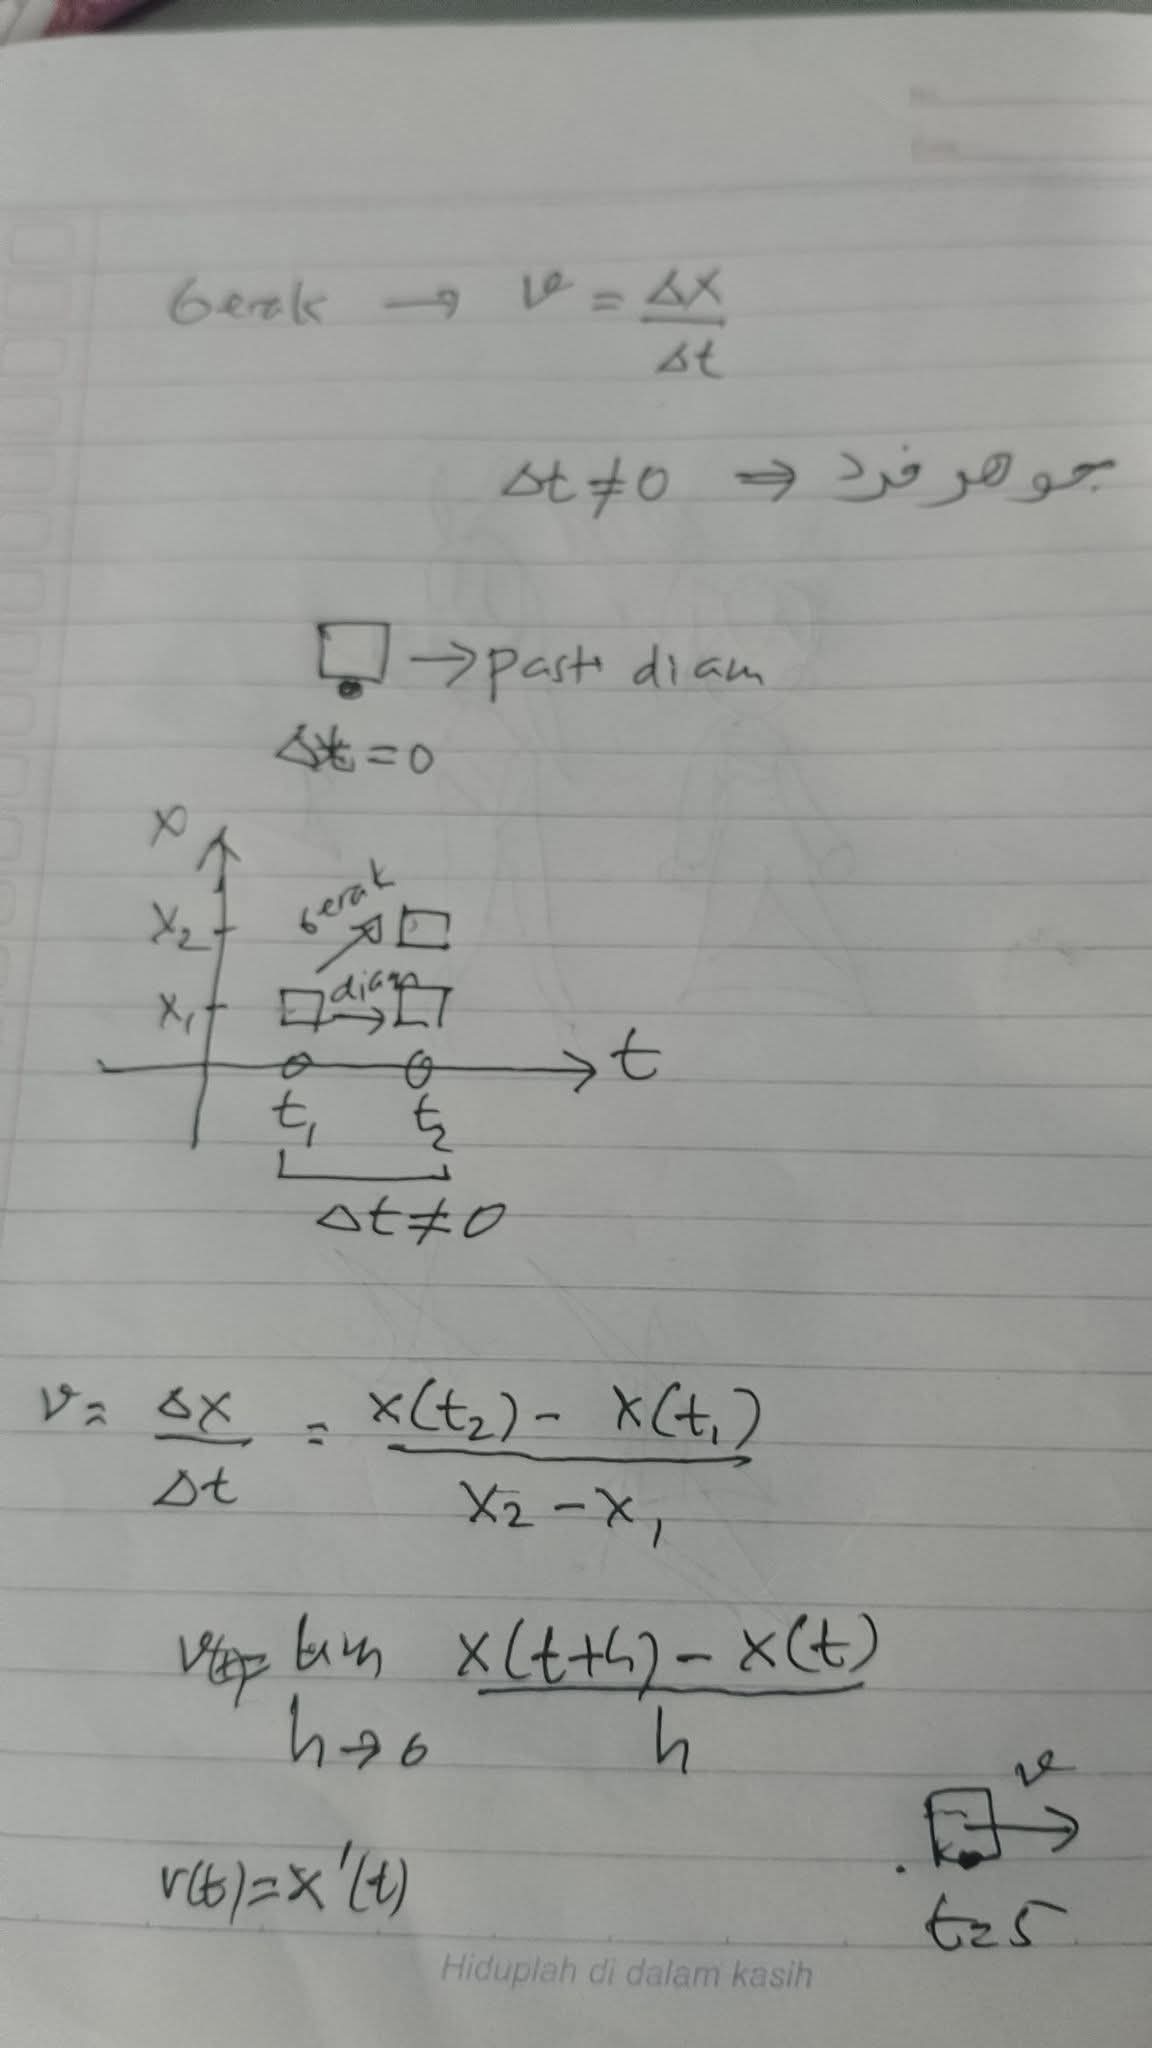 Gerak → v = Δx/Δt
Δt ≠ 0 ⇒ جوهر فرد
→ pasti diam
Δt = 0
x
x₂
gerak
x₁
diam
t
t₁ t₂
Δt ≠ 0
v = Δx/Δt = x(t₂) - x(t₁)/x₂ - x₁
v(t) = lim h→0 x(t+h) - x(t)/h
v
v(t) = x'(t)
t=5
Hiduplah di dalam kasih